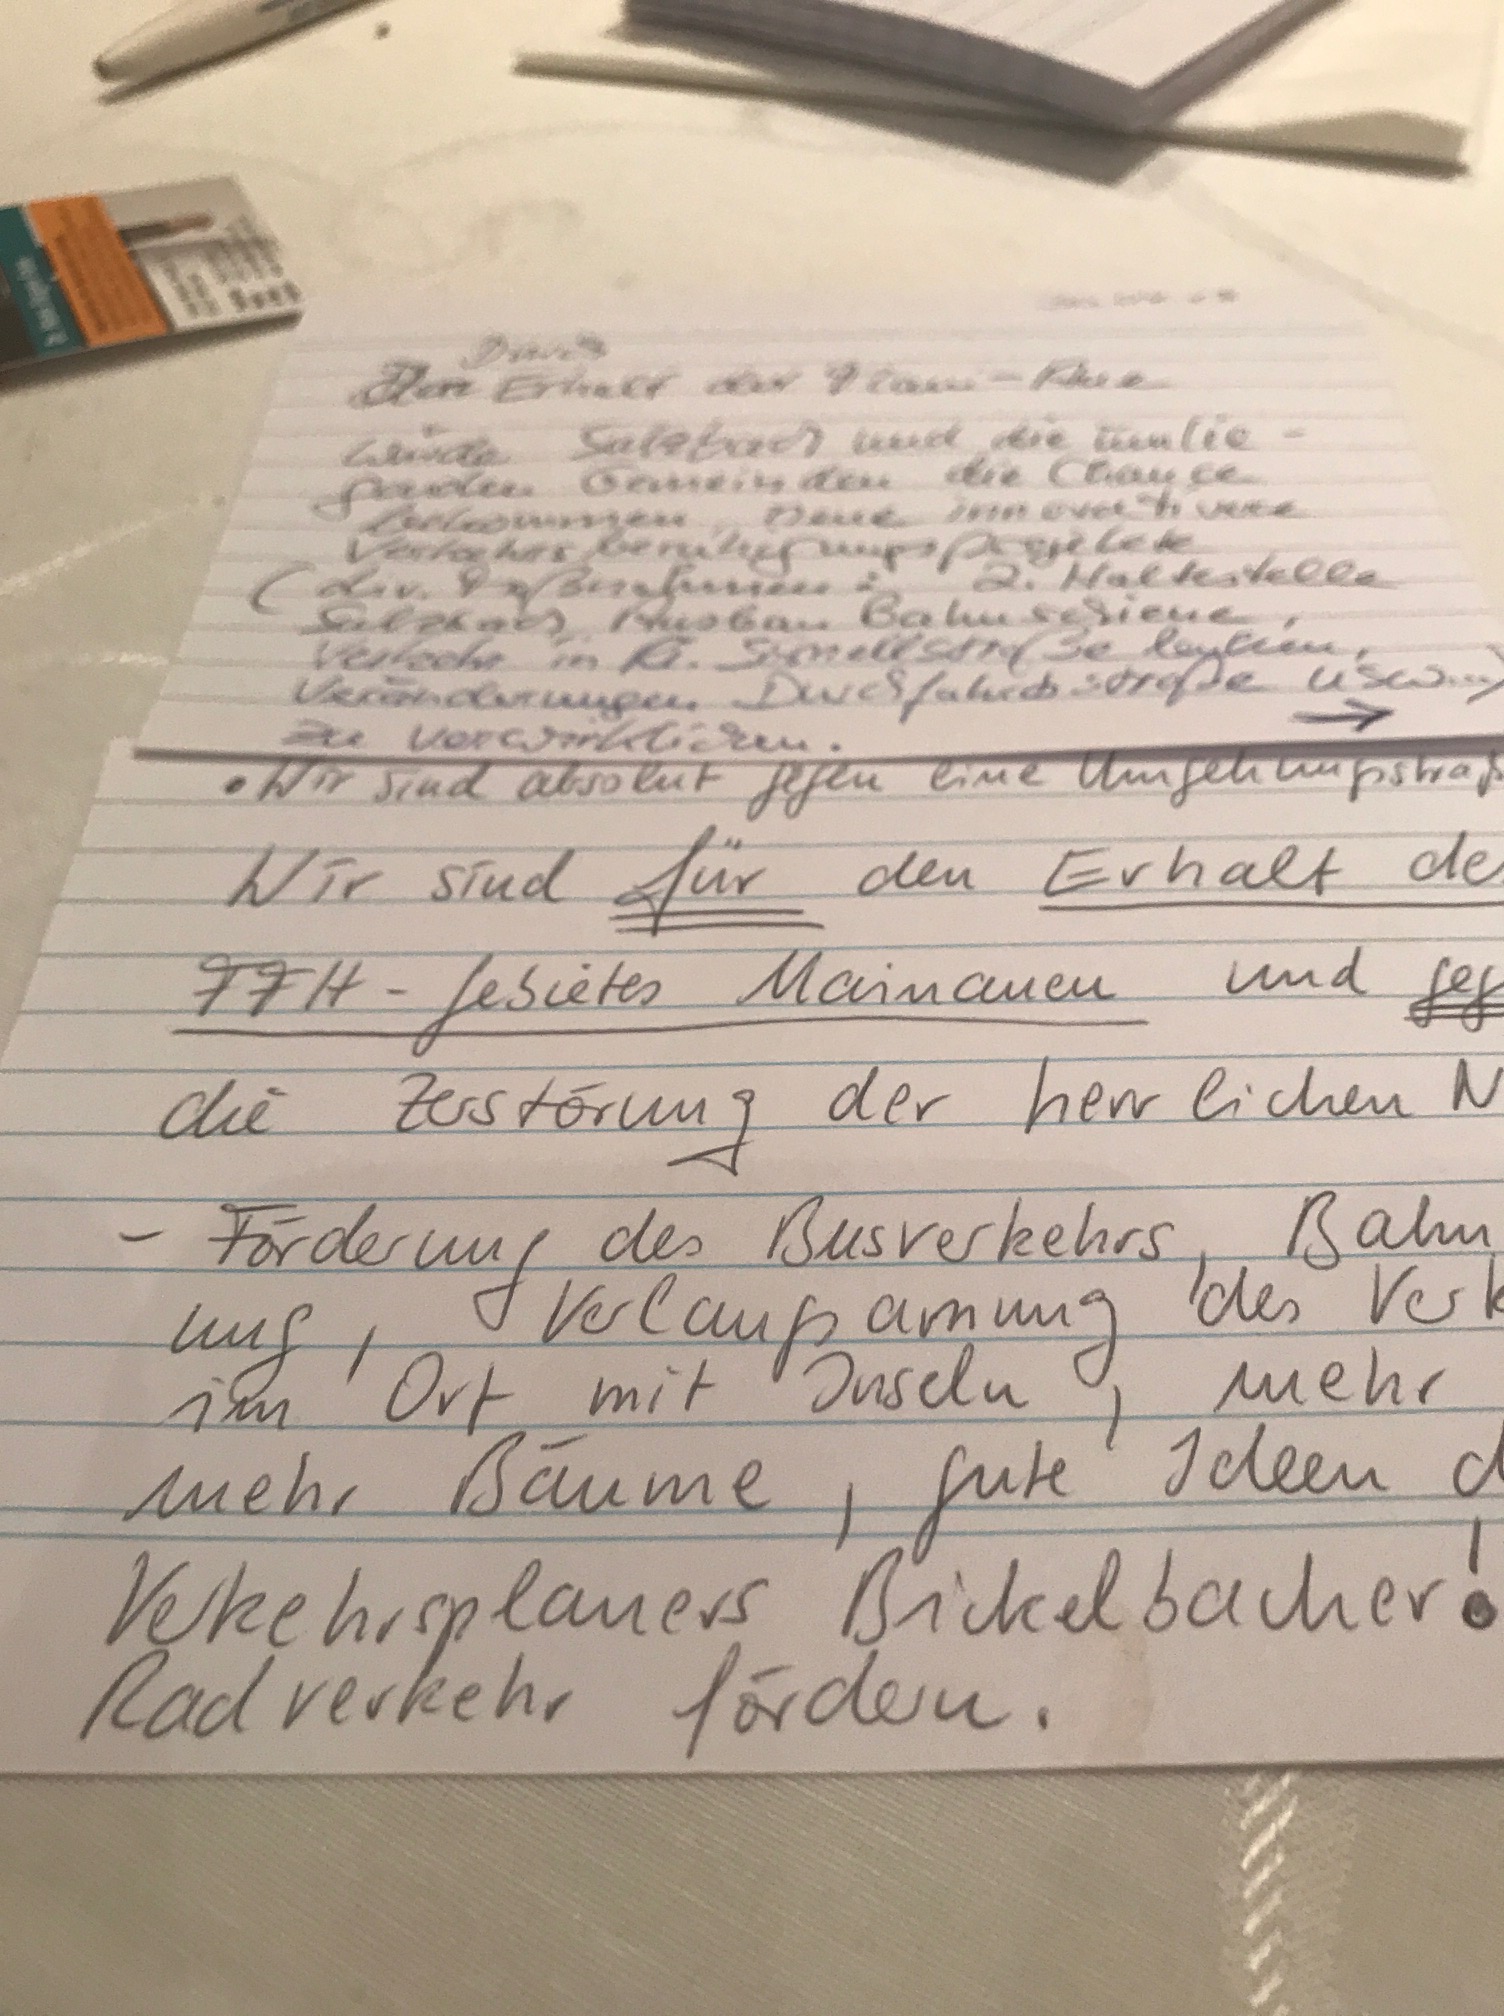 Durch
Den Erhalt der Main-Aue
würde Sulzbach und die umlie-
genden Gemeinden die Chance
bekommen, neue innovativere
Verkehrsberuhigungsprojekte
(div. Maßnahmen: 2. Haltestelle
Sulzbach, Ausbau Bahnschiene,
Verkehr in Ri. Schnellstraße lenken,
Veränderungen Durchfahrtsstraße usw...)
zu verwirklichen. →
• Wir sind absolut gegen eine Umgehungsstraß
Wir sind für den Erhalt des
FFH-Gebietes Mainauen und geg
die Zerstörung der herrlichen N
- Förderung des Busverkehrs, Bahn
ung, Verlangsamung des Verk
im Ort mit Inseln, mehr
mehr Bäume, gute Ideen d
Verkehrsplaners Bickelbacher!
Radverkehr fördern.